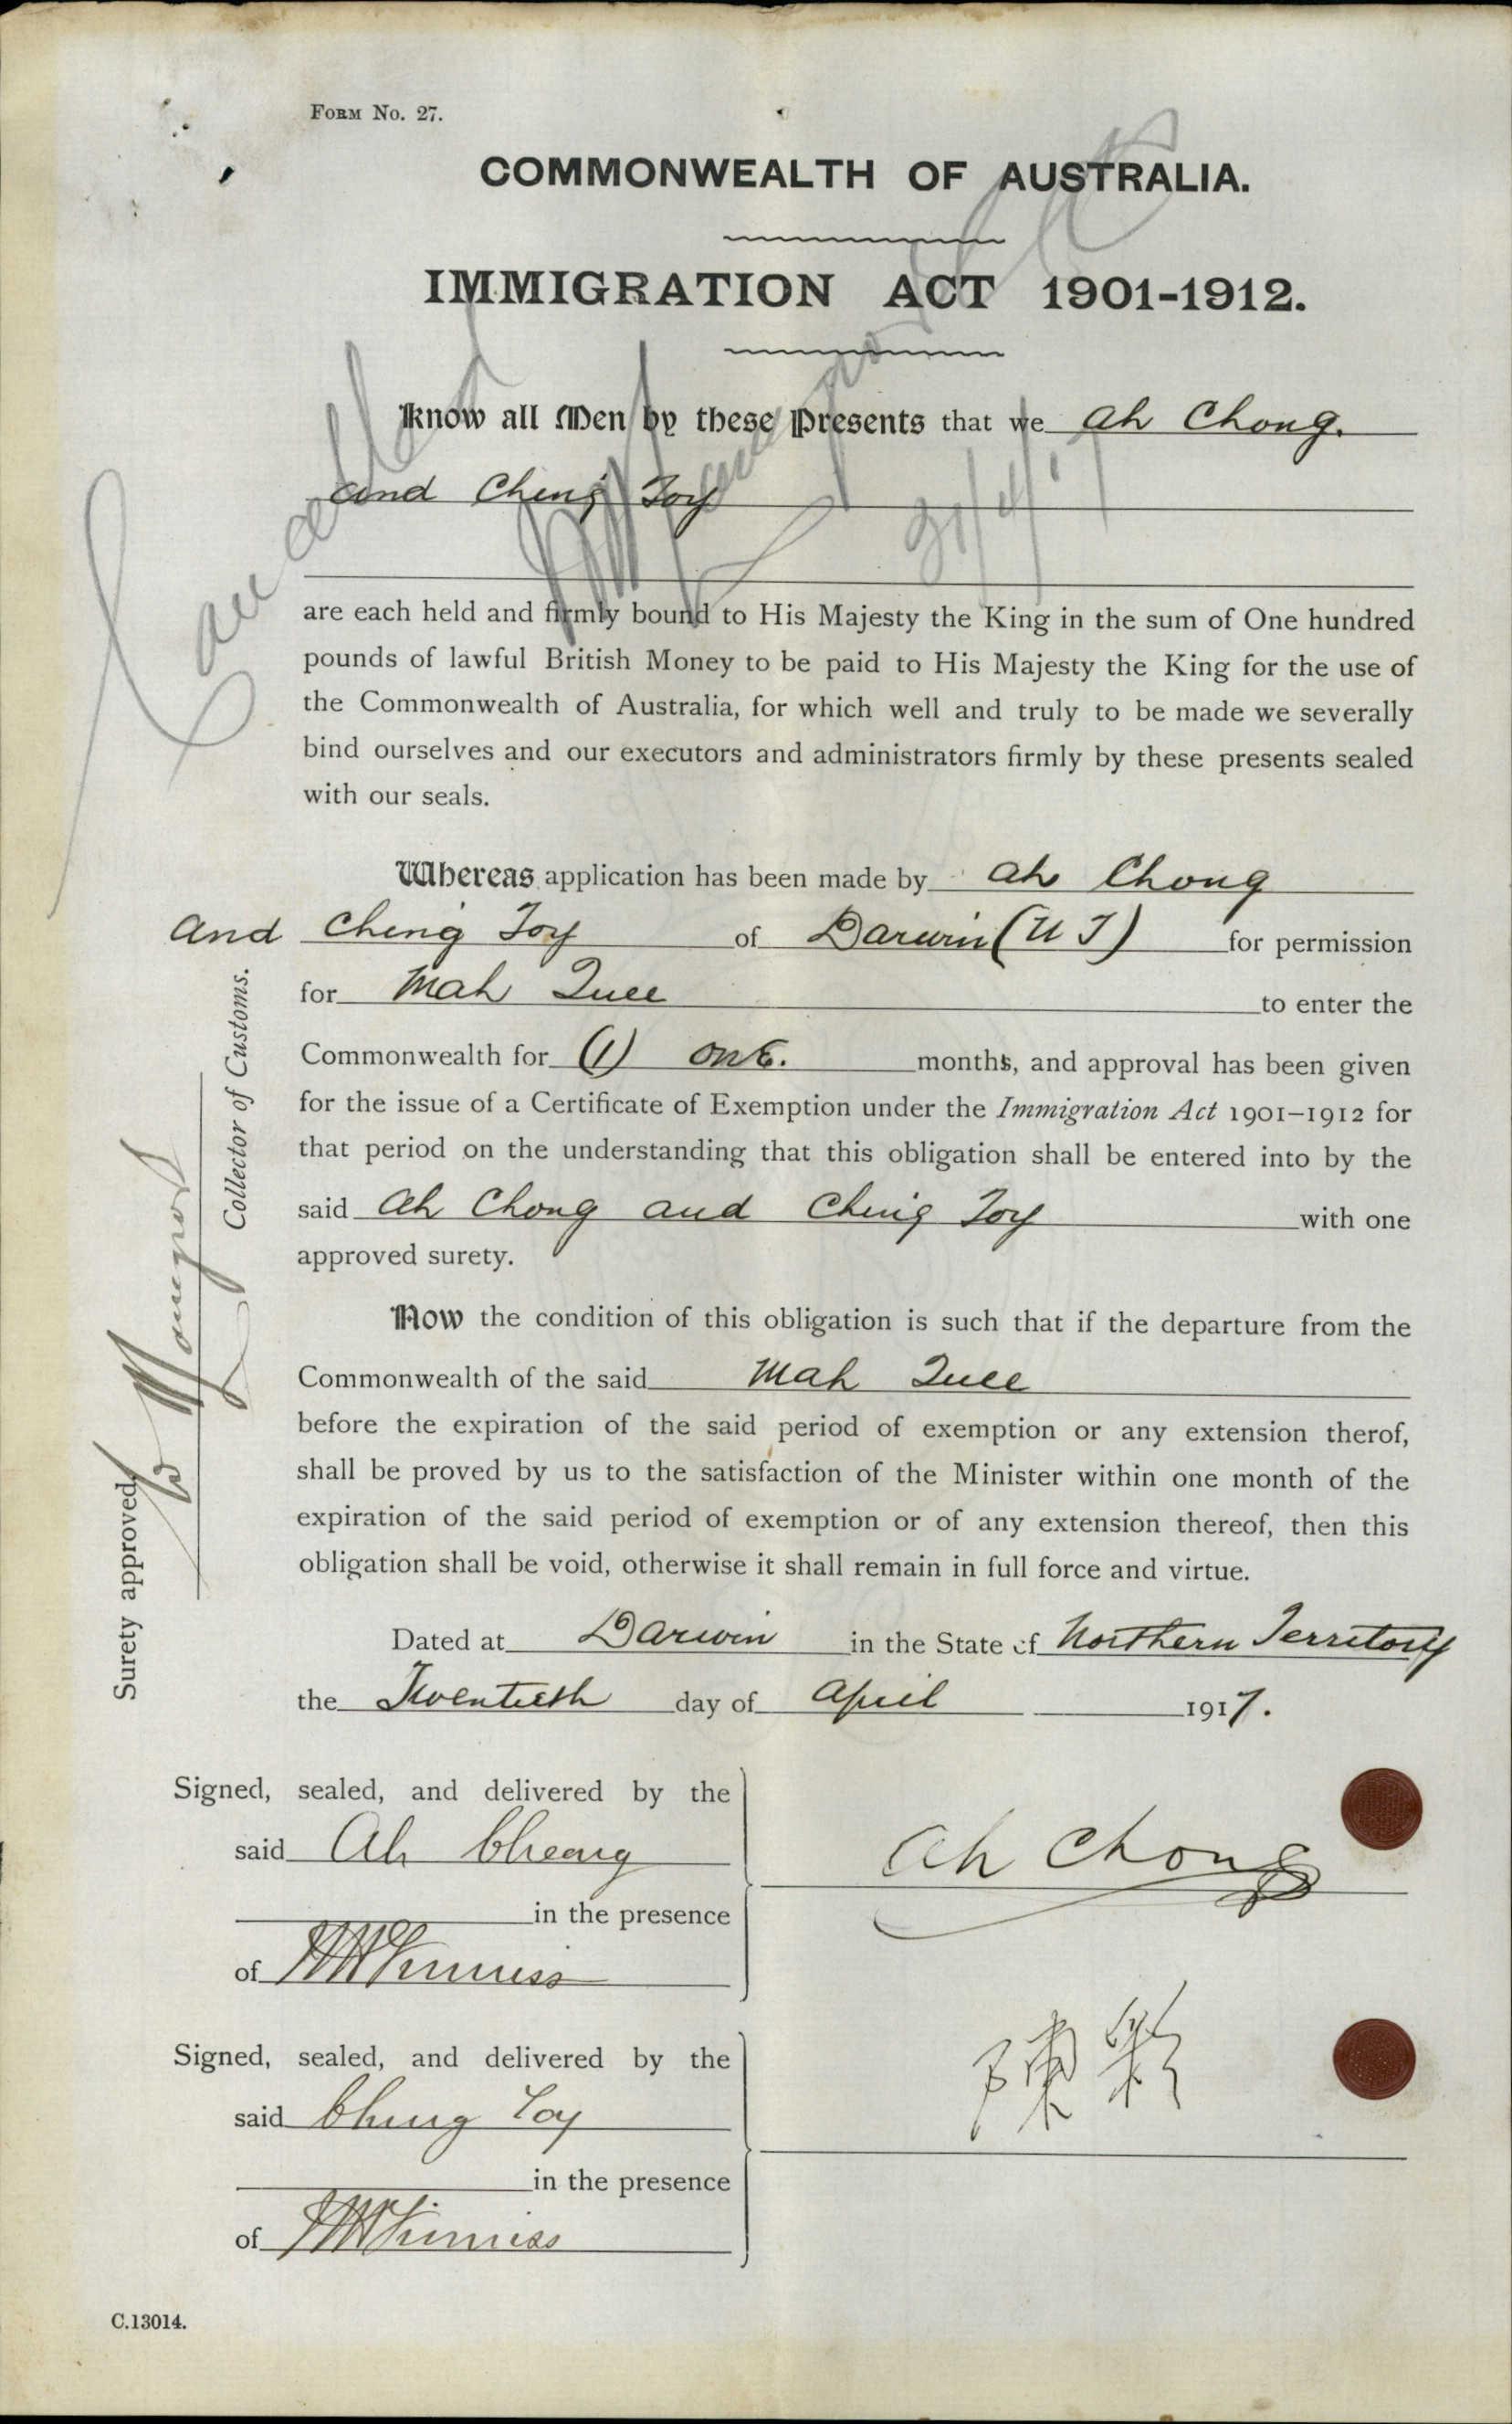 FORM No. 27.
COMMONWEALTH OF AUSTRALIA.
IMMIGRATION ACT 1901-1912.
Know all Men by these Presents that we Ah Chong.
and Ching Toy
Cancelled
21/4/17
are each held and firmly bound to His Majesty the King in the sum of One hundred
pounds of lawful British Money to be paid to His Majesty the King for the use of
the Commonwealth of Australia, for which well and truly to be made we severally
bind ourselves and our executors and administrators firmly by these presents sealed
with our seals.
Whereas application has been made by Ah Chong
and Ching Toy of Darwin (N T) for permission
for Mah Quee to enter the
Commonwealth for (1) one. months, and approval has been given
for the issue of a Certificate of Exemption under the Immigration Act 1901–1912 for
that period on the understanding that this obligation shall be entered into by the
said Ah Chong and Ching Toy with one
approved surety.
Now the condition of this obligation is such that if the departure from the
Commonwealth of the said Mah Quee
before the expiration of the said period of exemption or any extension therof,
shall be proved by us to the satisfaction of the Minister within one month of the
expiration of the said period of exemption or of any extension thereof, then this
obligation shall be void, otherwise it shall remain in full force and virtue.
Dated at Darwin in the State of Northern Territory
the Twentieth day of April 1917.
Surety approved,
Collector of Customs.
Signed, sealed, and delivered by the
said Ah Cheong
in the presence
of
Ah Chong
Signed, sealed, and delivered by the
said Ching Toy
in the presence
of
陳彩
C.13014.